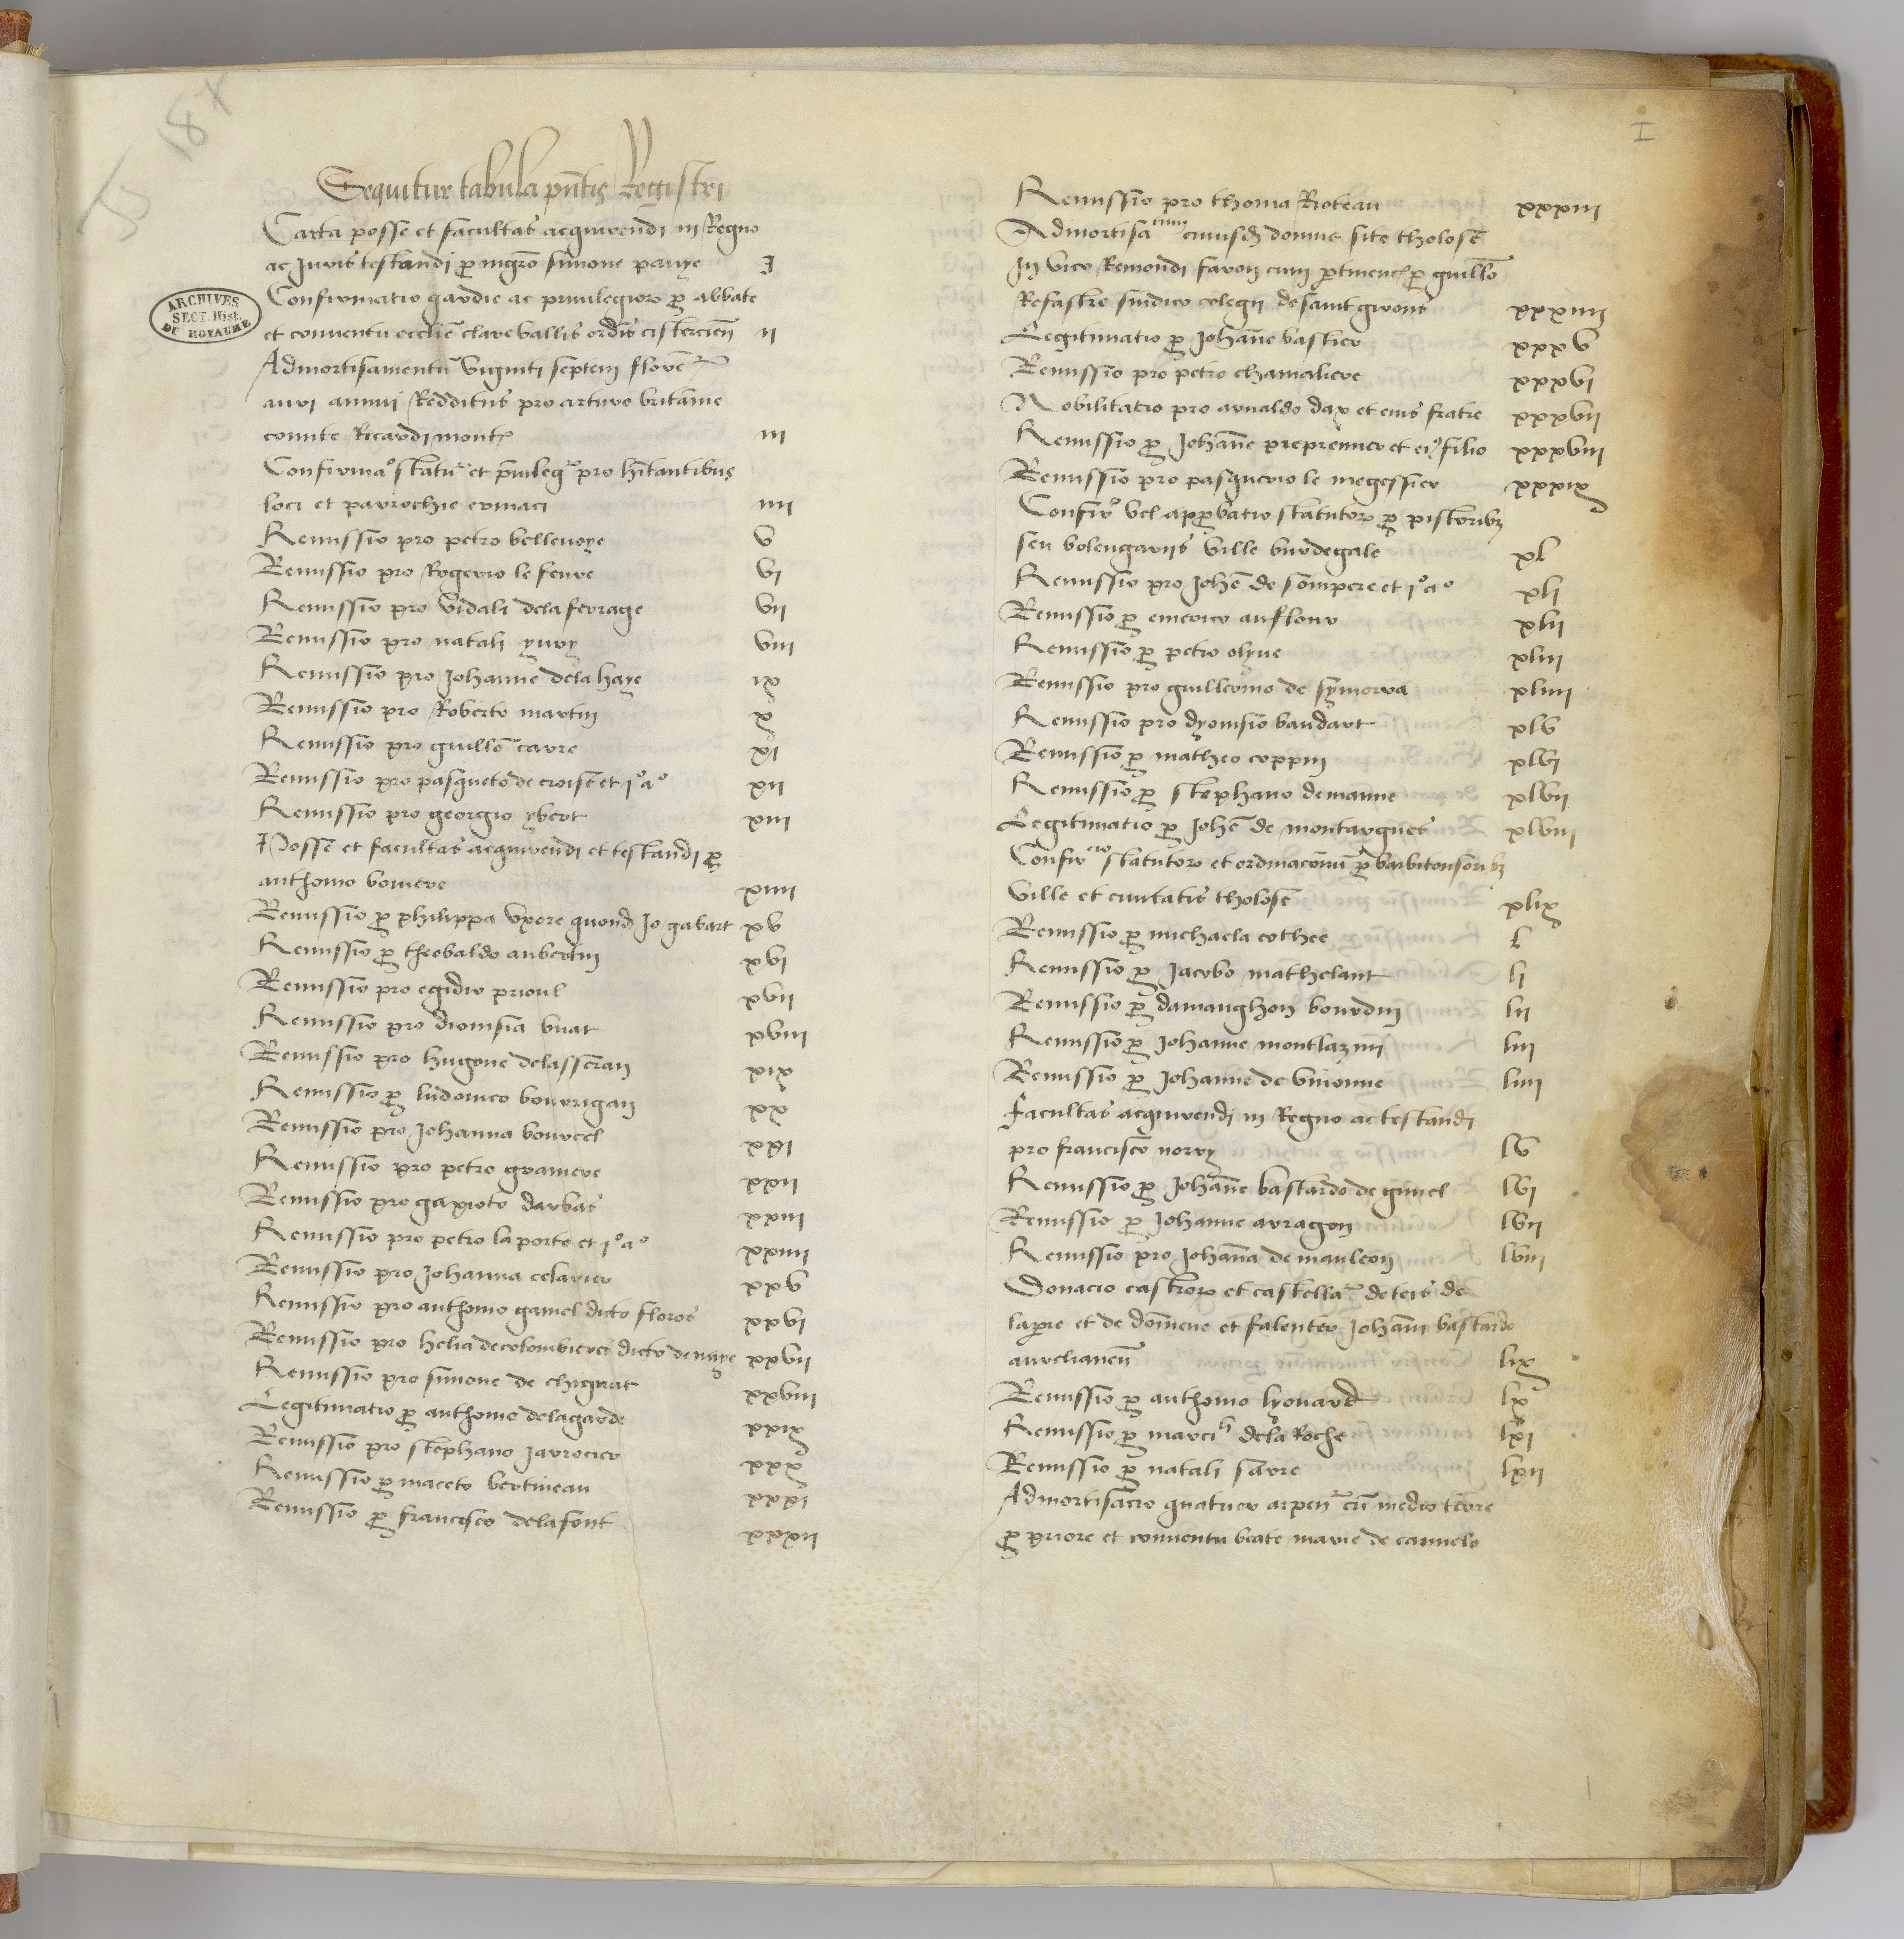 JJ 187
I
Sequitur tabula pñtis Registri
Carta posse et facultas acquirendi in Regno
ac Juris testandi pro mgrõ simone pavye I
Confirmatio gardie ac privilegior pro abbate
et conventu ecclie clarevallis ordis cistercien ii
ARCHIVES
SECT. Hist.
DU ROYAUME
Admortisamentu viginti septem floren
auri annui Redditus pro arturo britanie
comite Ricardimont iii
Confirmao statu et privileg pro hitantibus
loci et parrochie ermaci iiii
Remissio pro petro bellevoye v
Remissio pro Rogerio le fevre vi
Remissio pro vidali dela ferrage vii
Remissio pro natali yvry viii
Remissio pro Johanne dela haye ix
Remissio pro Roberto martin x
Remissio pro guillo carre xi
Remissio pro pasqueto de croiset et io ao xii
Remissio pro georgio ybert xiii
Posse et facultas acquirendi et testandi pro
anthonio bomere xiiii
Remissio pro philippa uxore quond Jo gabart xv
Remissio pro theobaldo aubertin xvi
Remissio pro egidio prioul xvii
Remissio pro dionisia buat xviii
Remissio pro hugone delasseran xix
Remissio pro ludovico bourrigan xx
Remissio pro Johanna bourcel xxi
Remissio pro petro gramere xxii
Remissio pro gaxioto darbas xxiii
Remissio pro petro laporte et io ao xxiiii
Remissio pro Johanna celarier xxv
Remissio pro anthonio gamel dicto floros xxvi
Remissio pro helia decolombieres dicto denaye xxvii
Remissio pro simone de chignat xxviii
Legitimatio pro anthonio delagarde xxix
Remissio pro stephano Jarrocier xxx
Remissio pro maceto bertineau xxxi
Remissio pro francisco delafont xxxii
Remissio pro thoma Rioteau xxxiii
Admortisacium cuiusd domus site tholose
In vico Remondi faron cum ptinenc pro guillo
Refastre sindico colegii desaint girons xxxiiii
Legitimatio pro Johane bastier xxxv
Remissio pro petro chamaliere xxxvi
Nobilitatio pro arnaldo dax et eius fratre xxxvii
Remissio pro Johane preprenier et ei9 filio xxxviii
Remissio pro pasquerio le megessier xxxix
Confiro vel approbatio statutor pro pistorib
seu bolengariis ville burdegale xl
Remissio pro Johe de sompere et io ao xli
Remissio pro emerico auflour xlii
Remissio pro petro olyve xliii
Remissio pro guillermo de symorra xliiii
Remissio pro dyonisio baudart xlv
Remissio pro matheo coppin xlvi
Remissio pro stephano demanne xlvii
Legitimatio pro Johe de montargues xlviii
Confircio statutor et ordinacionu pro barbitonsorib
ville et civitatis tholose xlix
Remissio pro michaela cothee l
Remissio pro Jacobo mathelant li
Remissio pro damanghon bourdin lii
Remissio pro Johanne montlazini liii
Remissio pro Johanne de vivonne liiii
Facultas acquirendi in Regno ac testandi
pro francisco norry lv
Remissio pro Johane bastardo de gimel lvi
Remissio pro Johanne arragon lvii
Remissio pro Johana de mauleon lviii
Donacio castror et castella deteis de
lapre et de domene et falentes Johani bastardo
aurelianen lix
Remissio pro anthonio lyonard lx
Remissio pro marcili dela Roche lxi
Remissio pro natali sarre lxii
Admortisacio quatuor arpen cu medio terre
pro priore et conventu beate marie de carmelo